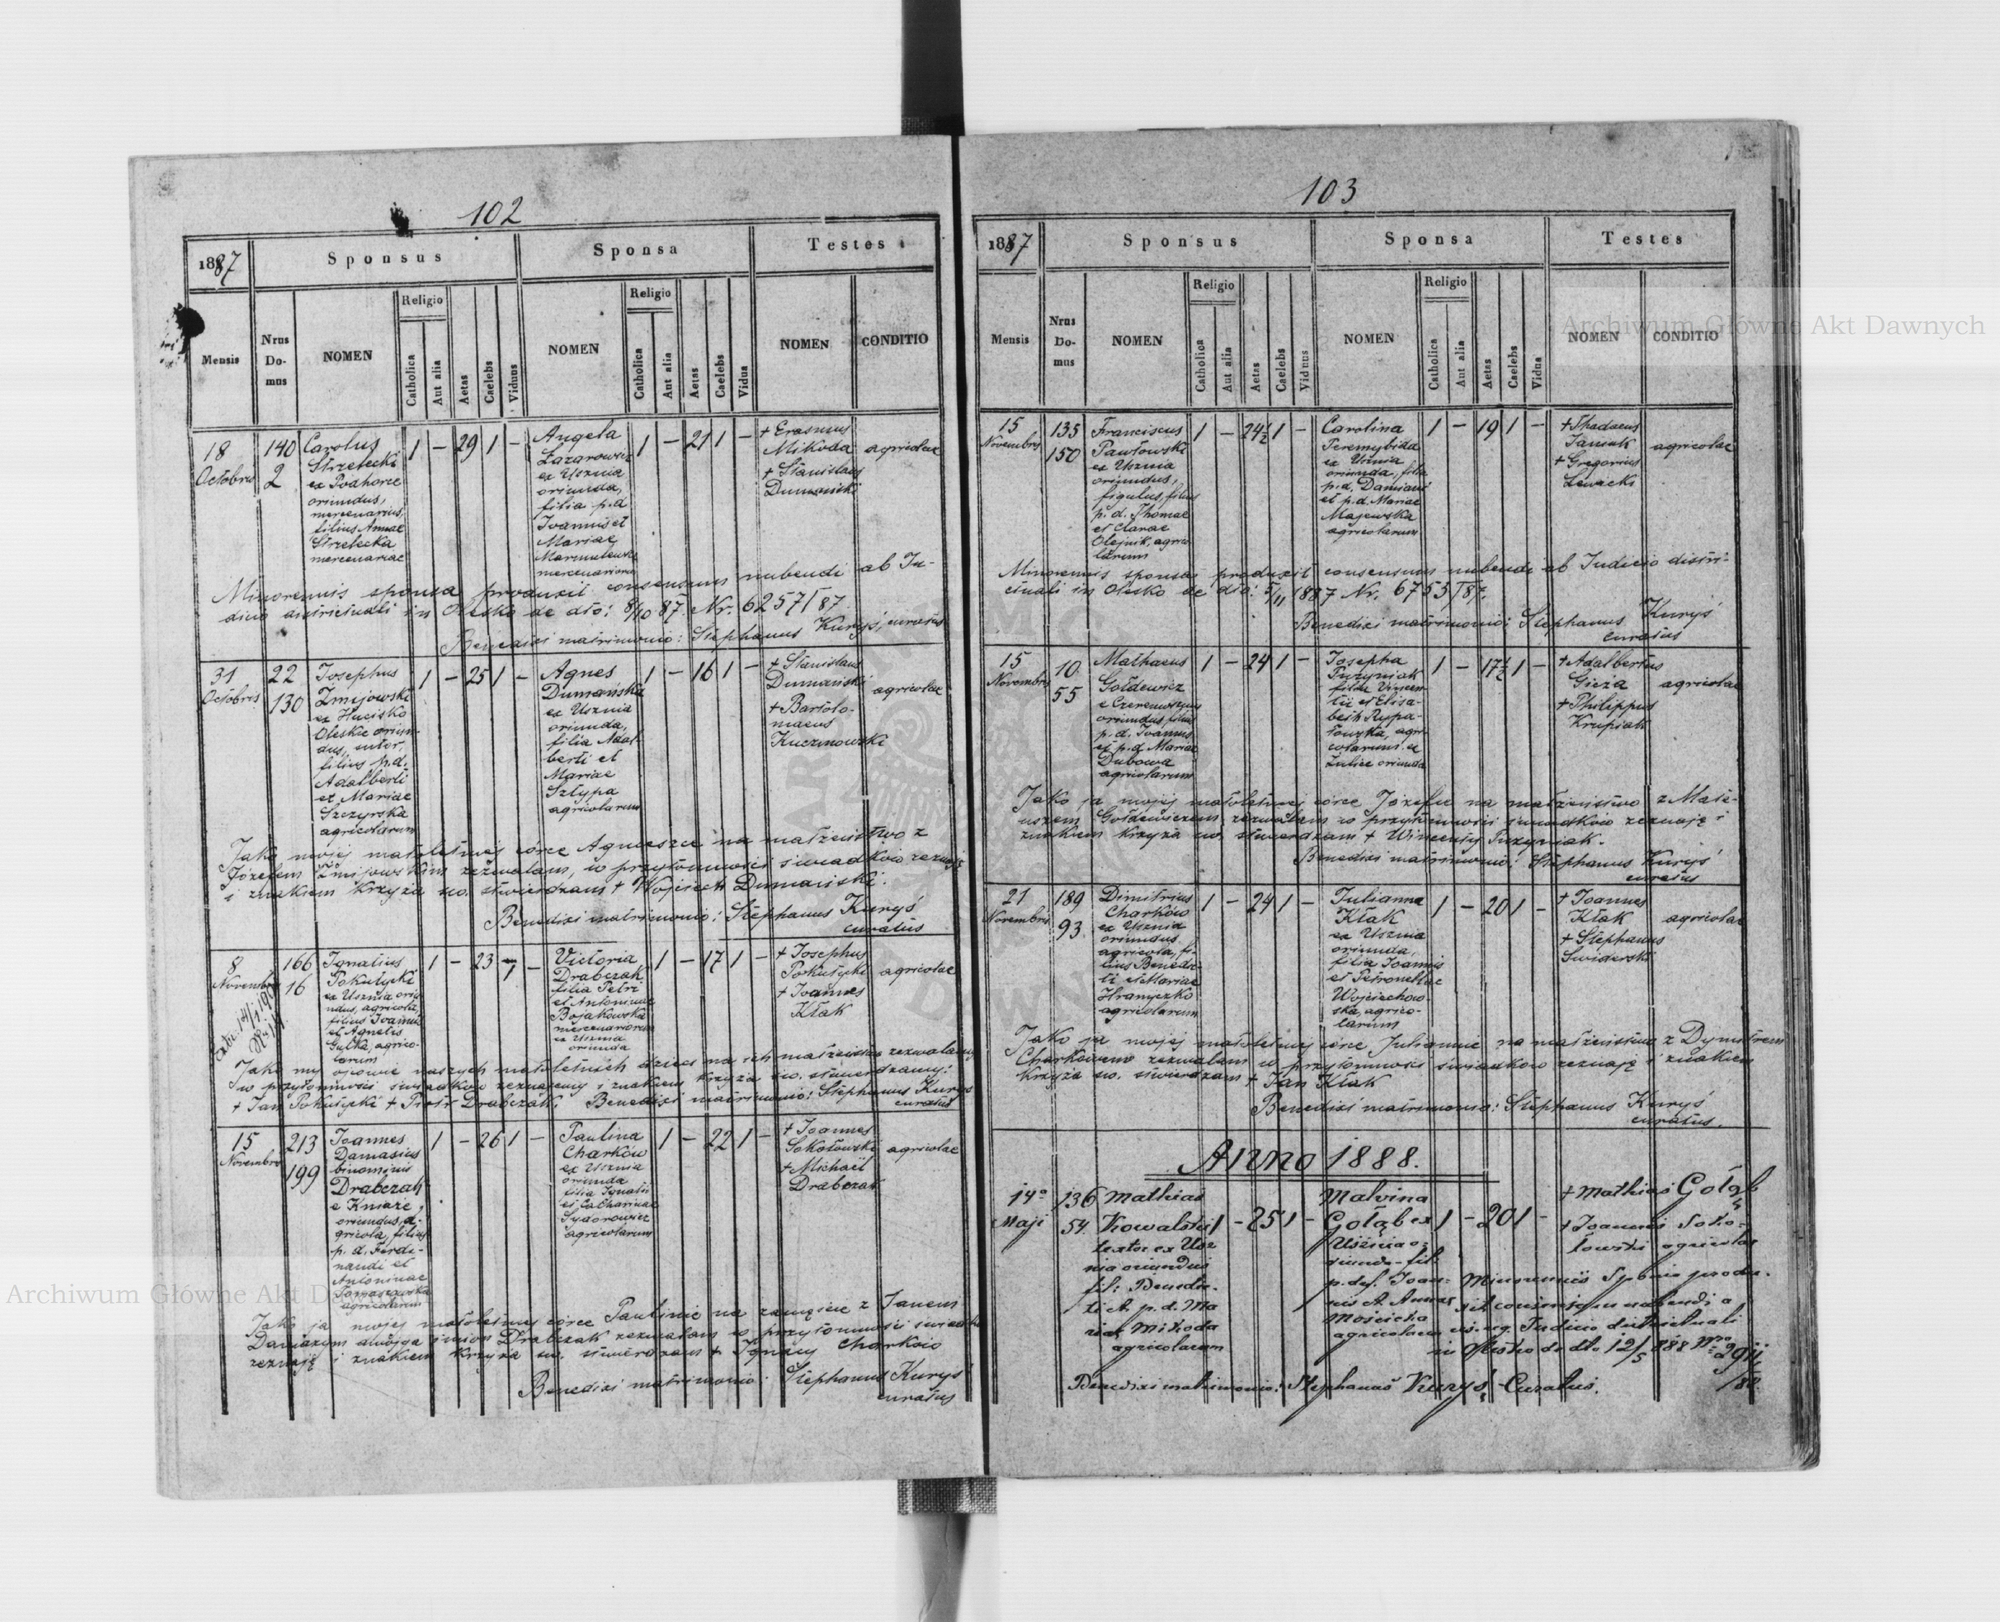 102
1887
Sponsus
Sponsa
Testes
Mensis
Nrus Do-mus
NOMEN
Religio
Catholica
Aut alia
Aetas
Caelebs
Viduus
NOMEN
Religio
Catholica
Aut alia
Aetas
Caelebs
Vidua
NOMEN
CONDITIO
18 Octobris
140
2
Carolus
Strzelecki
ex Podhorce
oriundus,
mercenarius,
filius Annae
Strzelecka
mercenariae
1 – 29 1 –
Angela
Łazarowicz
ex Usznia
oriunda,
filia p.d.
Joannis et
Mariae
mercenariorum
1 – 21 1 –
+ Erasmus
Mikoda
+ Stanislaus
Dumański
agricolae
Minorennis sponsa produxit consensum nubendi ab Ju-
dicio districtuali in Olesko de dto: 8/10 87. Nr. 6257/87.
Benedixi matrimonio: Stephanus Kuryś, curatus
31 Octobris
22
130
Josephus
Żmijowski
ex Hucisko
Oleskie oriun-
dus, sutor,
filius p.d.
Adalberti
et Mariae
Szczyrska
agricolarum
1 – 25 1 –
Agnes
Dumańska
ex Usznia
oriunda,
filia Adal-
berti et
Mariae
Szłypa
agricolarum
1 – 16 1 –
+ Stanislaus
Dumański
+ Bartolo-
maeus
Kuczmowski
agricolae
Jako mojej małoletniej córce Agnieszce na małżeństwo z
Józefem Żmijowskim zezwalam, w przytomności świadków zeznaję
i znakiem krzyża św. stwierdzam + Wojciech Dumański.
Benedixi matrimonio: Stephanus Kuryś
curatus
8 Novembris
166
16
Ignatius
Pokutycki
ex Usznia oriu-
ndus, agricola,
filius Joannis
et Agnetis
Gutka, agrico-
larum
1 – 23 1 –
Victoria
Drabczak
filia Petri
et Antoninae
Bojakowska
mercenariorum
ex Usznia
oriunda
1 – 17 1 –
+ Josephus
Pokutycki
+ Joannes
Kłak
agricolae
Jako my ojcowie naszych małoletnich dzieci na ich małżeństwo zezwalamy
w przytomności świadków zeznajemy i znakiem krzyża św. stwierdzamy:
+ Jan Pokutycki + Piotr Drabczak. Benedixi matrimonio: Stephanus Kuryś
curatus
15 Novembris
213
199
Joannes
Damasius
binominis
Drabczak
e Kniaże,
oriundus, a-
gricola, filius
p. d. Ferdi-
nandi et
Antoninae
Tomaszewska
agricolarum
1 – 26 1 –
Paulina
Charków
ex Usznia
oriunda
filia Ignatii
et Catharinae
Sydorowicz
agricolarum
1 – 22 1 –
+ Joannes
Sokołowski
+ Michaël
Drabczak
agricolae
Jako ja mojej małoletniej córce Paulinie na zamęście z Janem
Damazym dwojga imion Drabczak zezwalam w przytomności świadków
zeznaję i znakiem krzyża św. stwierdzam + Ignacy Charków
Benedixi matrimonio: Stephanus Kuryś
curatus
103
1887
Sponsus
Sponsa
Testes
Mensis
Nrus Do-mus
NOMEN
Religio
Catholica
Aut alia
Aetas
Caelebs
Viduus
NOMEN
Religio
Catholica
Aut alia
Aetas
Caelebs
Vidua
NOMEN
CONDITIO
15 Novembris
135
150
Franciscus
Pawłowski
ex Usznia
oriundus,
figulus, filius
p. d. Thomae
et Clarae
Olejnik, agrico-
larum
1 – 24½ 1 –
Carolina
Peremybida
ex Usznia
oriunda, filia
p.d. Damiani
et p.d. Mariae
Majewska
agricolarum
1 – 19 1 –
+ Thadaeus
Janiuk
+ Gregorius
Lewicki
agricolae
Minorennis sponsa produxit consensum nubendi ab Judicio distri-
ctuali in Olesko de dto: 5/11 1887 Nr. 6753/87.
Benedixi matrimonio: Stephanus Kuryś
curatus
15 Novembris
10
55
Mathaeus
Gołdewicz
e Czeremosznia
oriundus, filius
p. d. Joannis
et p.d. Mariae
Dubowa
agricolarum
1 – 24 1 –
Josepha
Puzyniak
filia Vincen-
tii et Elisa-
beth Rypa-
łowska, agri-
colarum ex
Żulice oriunda
1 – 17½ 1 –
+ Adalbertus
Giża
+ Philippus
Krupiak
agricolae
Jako ja mojej małoletniej córce Józefie na małżeństwo z Mate-
uszem Gołdewiczem zezwalam w przytomności świadków zeznaję i
znakiem krzyża św. stwierdzam + Wincenty Puzyniak.
Benedixi matrimonio: Stephanus Kuryś
curatus
21 Novembris
189
93
Dimitrius
Charków
ex Usznia
oriundus
agricola, fi-
lius Benedi-
cti et Mariae
Hranyczko
agricolarum
1 – 24 1 –
Julianna
Kłak
ex Usznia
oriunda,
filia Joannis
et Petronellae
Wojciechow-
ska, agrico-
larum
1 – 20 1 –
+ Joannes
Kłak
+ Stephanus
Swiderski
agricolae
Jako ja mojej małoletniej córce Juliannie na małżeństwo z Dymitrem
Charkowem zezwalam w przytomności świadków zeznaję i znakiem
krzyża św. stwierdzam + Jan Kłak
Benedixi matrimonio: Stephanus Kuryś
curatus.
Anno 1888.
14o Maji
136
54
Mathias
Kowalski
textor ex Usz
nia oriundus
fil: Benedi-
cti et p. d. Ma
riae Mikoda
agricolarum
1 – 25 1 –
Malvina
Gołąb ex
Usznia o-
riunda fil:
p. def. Joan-
nis et Annae
Mościcka
agricolarum
1 – 20 1 –
+ Mathias Gołąb
+ Joannes Soko-
łowski agricolae
Minorennis Sponsa produ-
xit consensum nubendi a
Judicio districtuali
in Olesko de dto 12/5 888 Nro 2911/88
Benedixi matrimonio: Stephanus Kuryś Curatus.
Archiwum Główne Akt Dawnych
Archiwum Główne Akt Dawnych